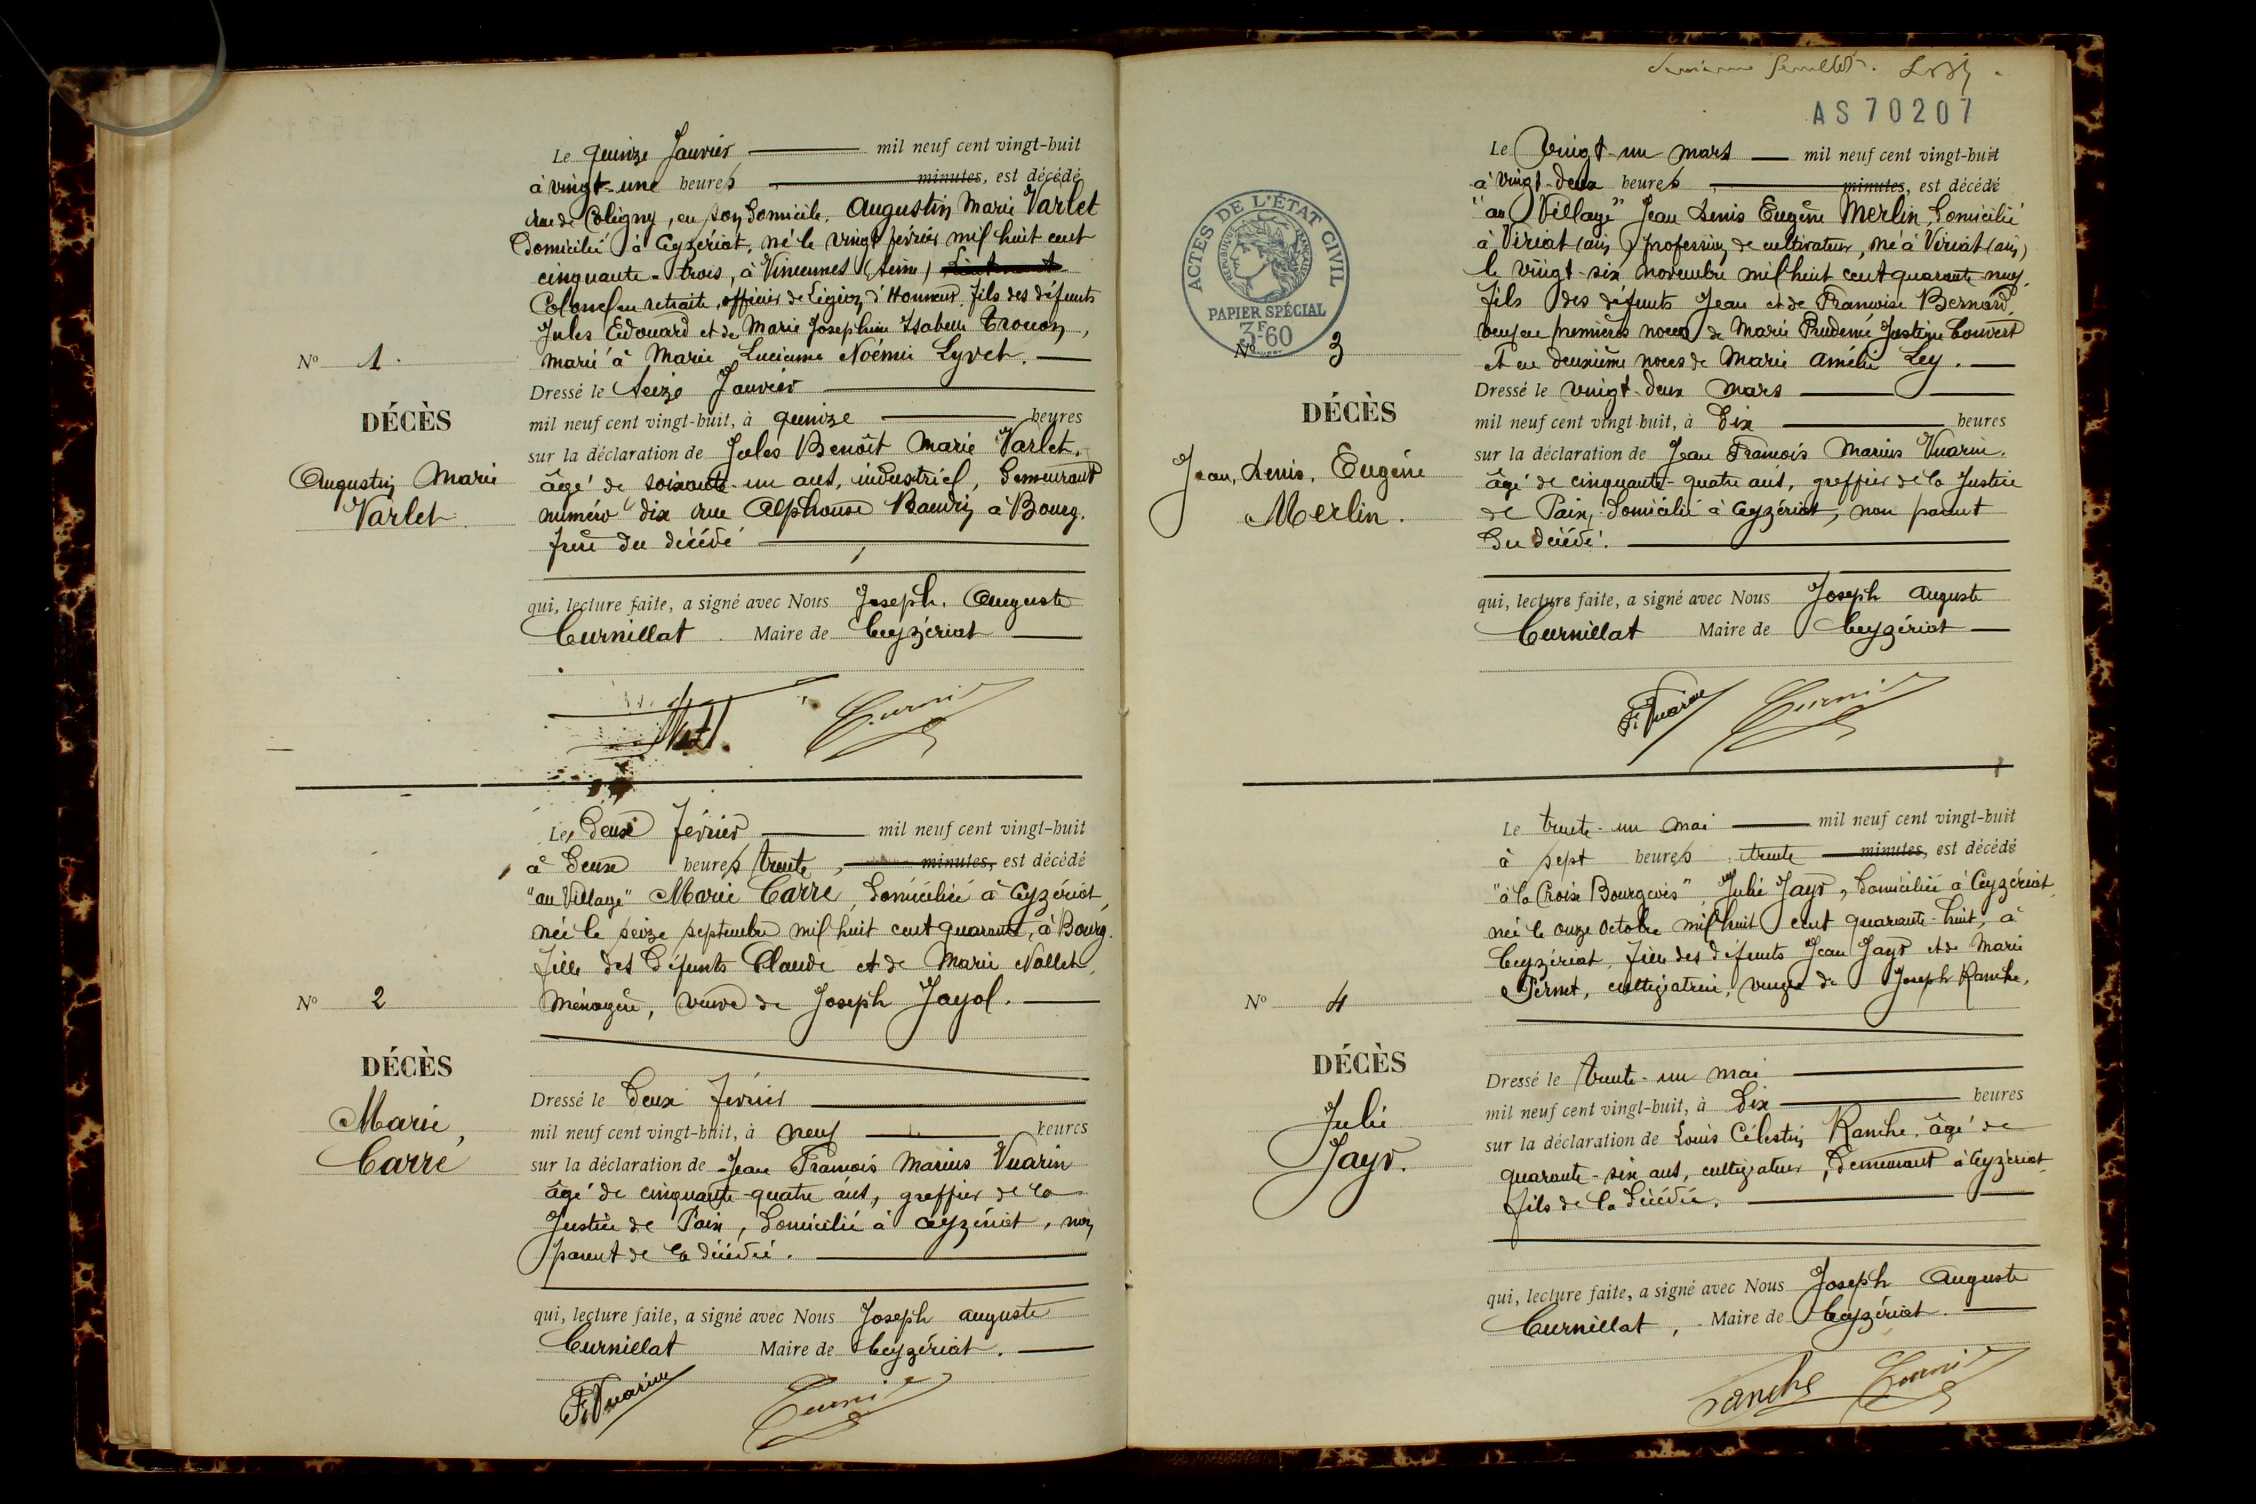 Le quinze Janvier mil neuf cent vingt-huit
à vingt-une heures minutes, est décédé
rue de Coligny, en son domicile, Augustin Marie Varlet
domicilié à Ceyzériat, né le vingt février mil huit cent
cinquante-trois, à Vincennes (Seine)
Colonel en retraite, officier de Légion d'Honneur, fils des défunts
Jules Edouard et de Marie Joséphine Isabeau Tronon,
marié à Marie Lucienne Noémie Lyvet.
N° 1.
Dressé le seize Janvier
mil neuf cent vingt-huit, à quinze heures
DÉCÈS
sur la déclaration de Jules Benoît Marie Varlet,
Augustin Marie
Varlet
âgé de soixante-un ans, industriel, demeurant
numéro dix rue Alphonse Baudin à Bourg,
frère du décédé
qui, lecture faite, a signé avec Nous Joseph, Auguste
Curnillat Maire de Ceyzériat
Le deux février mil neuf cent vingt-huit
à deux heures trente, minutes, est décédé
"au Village" Marie Carré, domiciliée à Ceyzériat,
née le seize septembre mil huit cent quarante, à Bourg.
fille des défunts Claude et de Marie Nallet,
ménagère, veuve de Joseph Jayol.
N° 2
DÉCÈS
Marie,
Carré
Dressé le deux février
mil neuf cent vingt-huit, à neuf heures
sur la déclaration de Jean François Marius Vuarin
âgé de cinquante-quatre ans, greffier de la
Justice de Paix, domicilié à Ceyzériat, non
parent de la décédée.
qui, lecture faite, a signé avec Nous Joseph Auguste
Curnillat Maire de Ceyzériat.
F. Vuarin
AS 70207
Le vingt-un mars mil neuf cent vingt-huit
à vingt-deux heures minutes, est décédé
"au Village" Jean Denis Eugène Merlin, domicilié
à Viriat (ain) profession de cultivateur, né à Viriat (ain)
le vingt-six novembre mil huit cent quarante-neuf,
fils des défunts Jean et de Françoise Bernard,
veuf en premières noces de Marie Prudence Justine Convert
et en deuxième noces de Marie Amélie Ley.
ACTES DE L'ÉTAT CIVIL
RÉPUBLIQUE FRANÇAISE
PAPIER SPÉCIAL
3F60
N° 3
DÉCÈS
Jean, Denis, Eugène
Merlin.
Dressé le vingt-deux mars
mil neuf cent vingt-huit, à dix heures
sur la déclaration de Jean François Marius Vuarin,
âgé de cinquante-quatre ans, greffier de la Justice
de Paix, domicilié à Ceyzériat, non parent
du décédé.
qui, lecture faite, a signé avec Nous Joseph Auguste
Curnillat Maire de Ceyzériat
F. Vuarin
Le trente-un mai mil neuf cent vingt-huit
à sept heures trente minutes, est décédé
"à la Croix Bourgeois", Julie Jayr, domiciliée à Ceyzériat
née le onze octobre mil huit cent quarante-huit, à
Ceyzériat, fille des défunts Jean Jayr et de Marie
Pernet, cultivatrice, veuve de Joseph Ranche,
N° 4
DÉCÈS
Julie
Jayr.
Dressé le trente-un mai
mil neuf cent vingt-huit, à dix heures
sur la déclaration de Louis Célestin Ranche, âgé de
quarante-six ans, cultivateur, demeurant à Ceyzériat
fils de la décédée.
qui, lecture faite, a signé avec Nous Joseph Auguste
Curnillat, Maire de Ceyzériat
Ranche